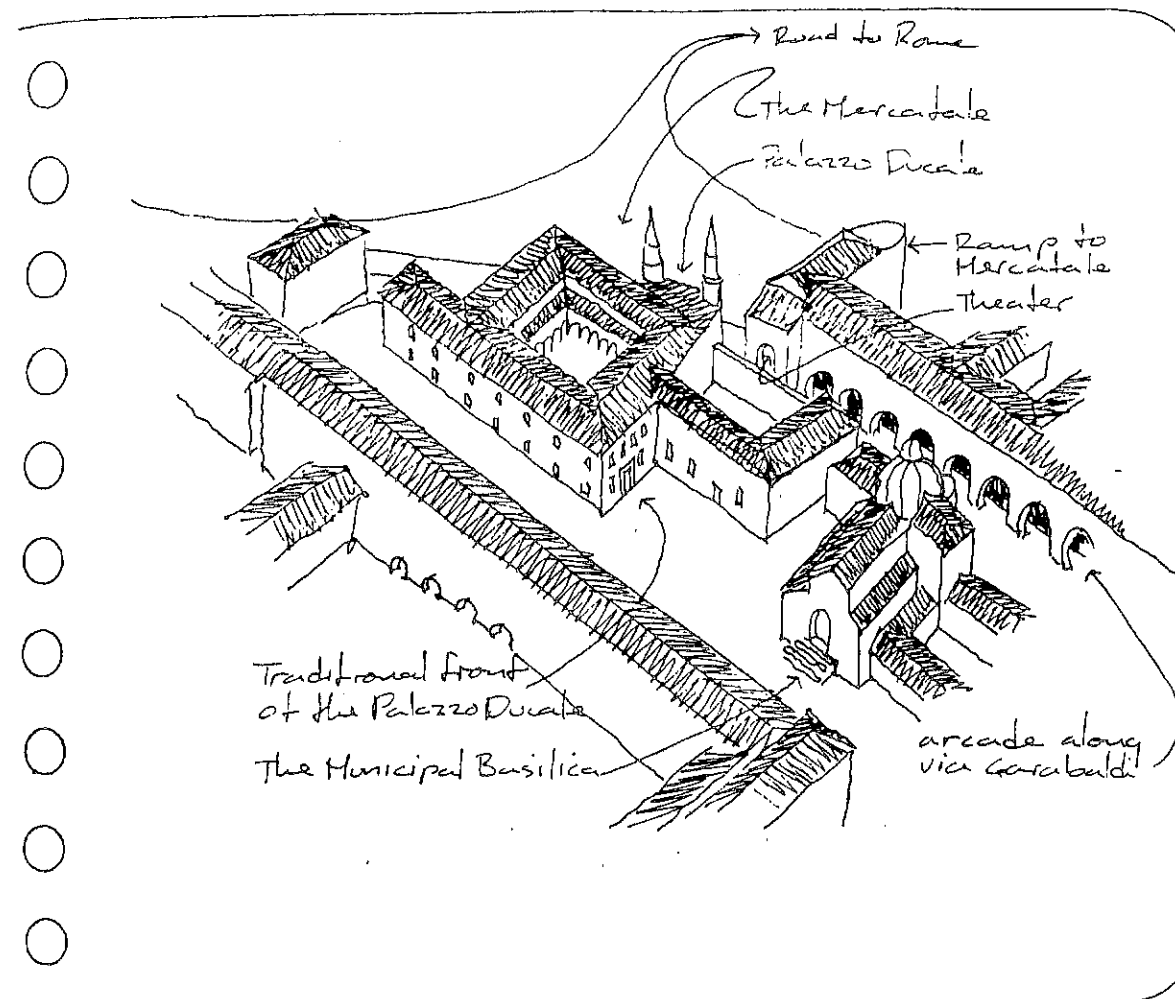 Road to Rome
The Mercatale
Palazzo Ducale
Ramp to
Mercatale
Theater
Traditional front
of the Palazzo Ducale
The Municipal Basilica
arcade along
via Garabaldi